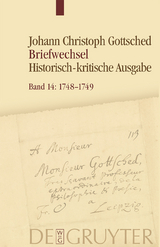 Johann Christoph Gottsched
Briefwechsel
Historisch-kritische Ausgabe
Band 14: 1748–1749
A Monsieur
Monsieur Gottsched,
Professeur
Philosophie
Leipzig
DE GRUYTER